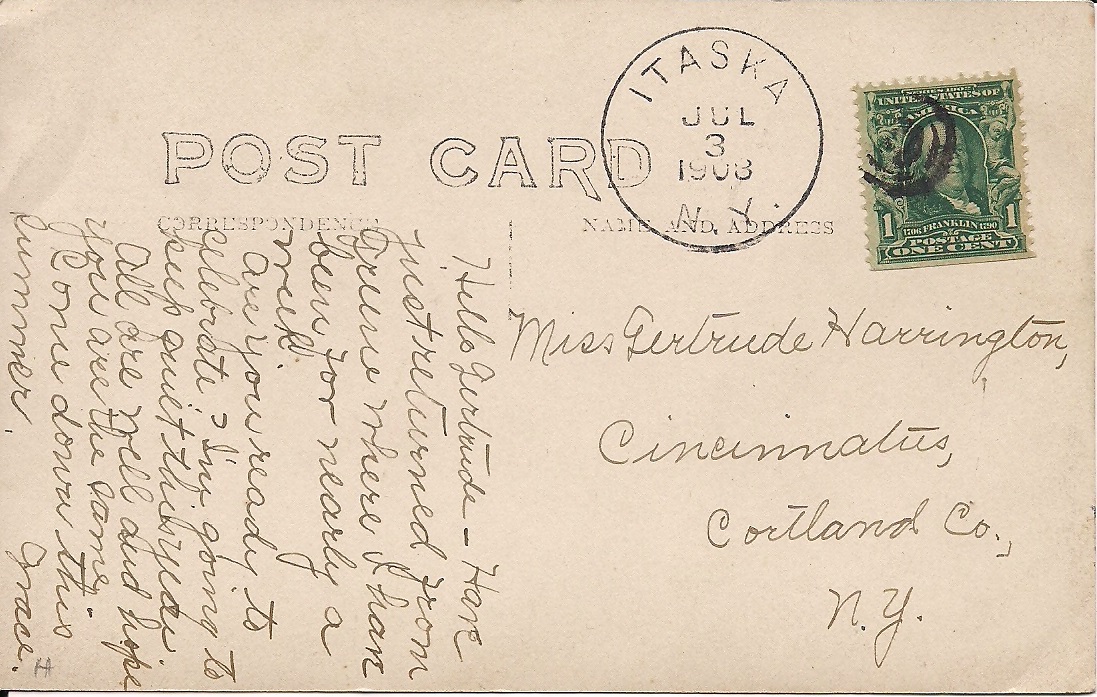 POST CARD
CORRESPONDENCE
NAME AND ADDRESS
ITASKA
JUL
3
1908
N.Y.
SERIES 1902
UNITED STATES OF
AMERICA
1 1706 FRANKLIN 1790 1
POSTAGE
ONE CENT
Hello Gertrude - Have
just returned from
Greene where I have
been for nearly a
week.
Are you ready to
celebrate? I'm going to
keep quiet this year.
All are well and hope
you are the same.
Come down this
summer.
Grace.
H
Miss Gertrude Harrington,
Cincinnatus,
Cortland Co.,
N.Y.